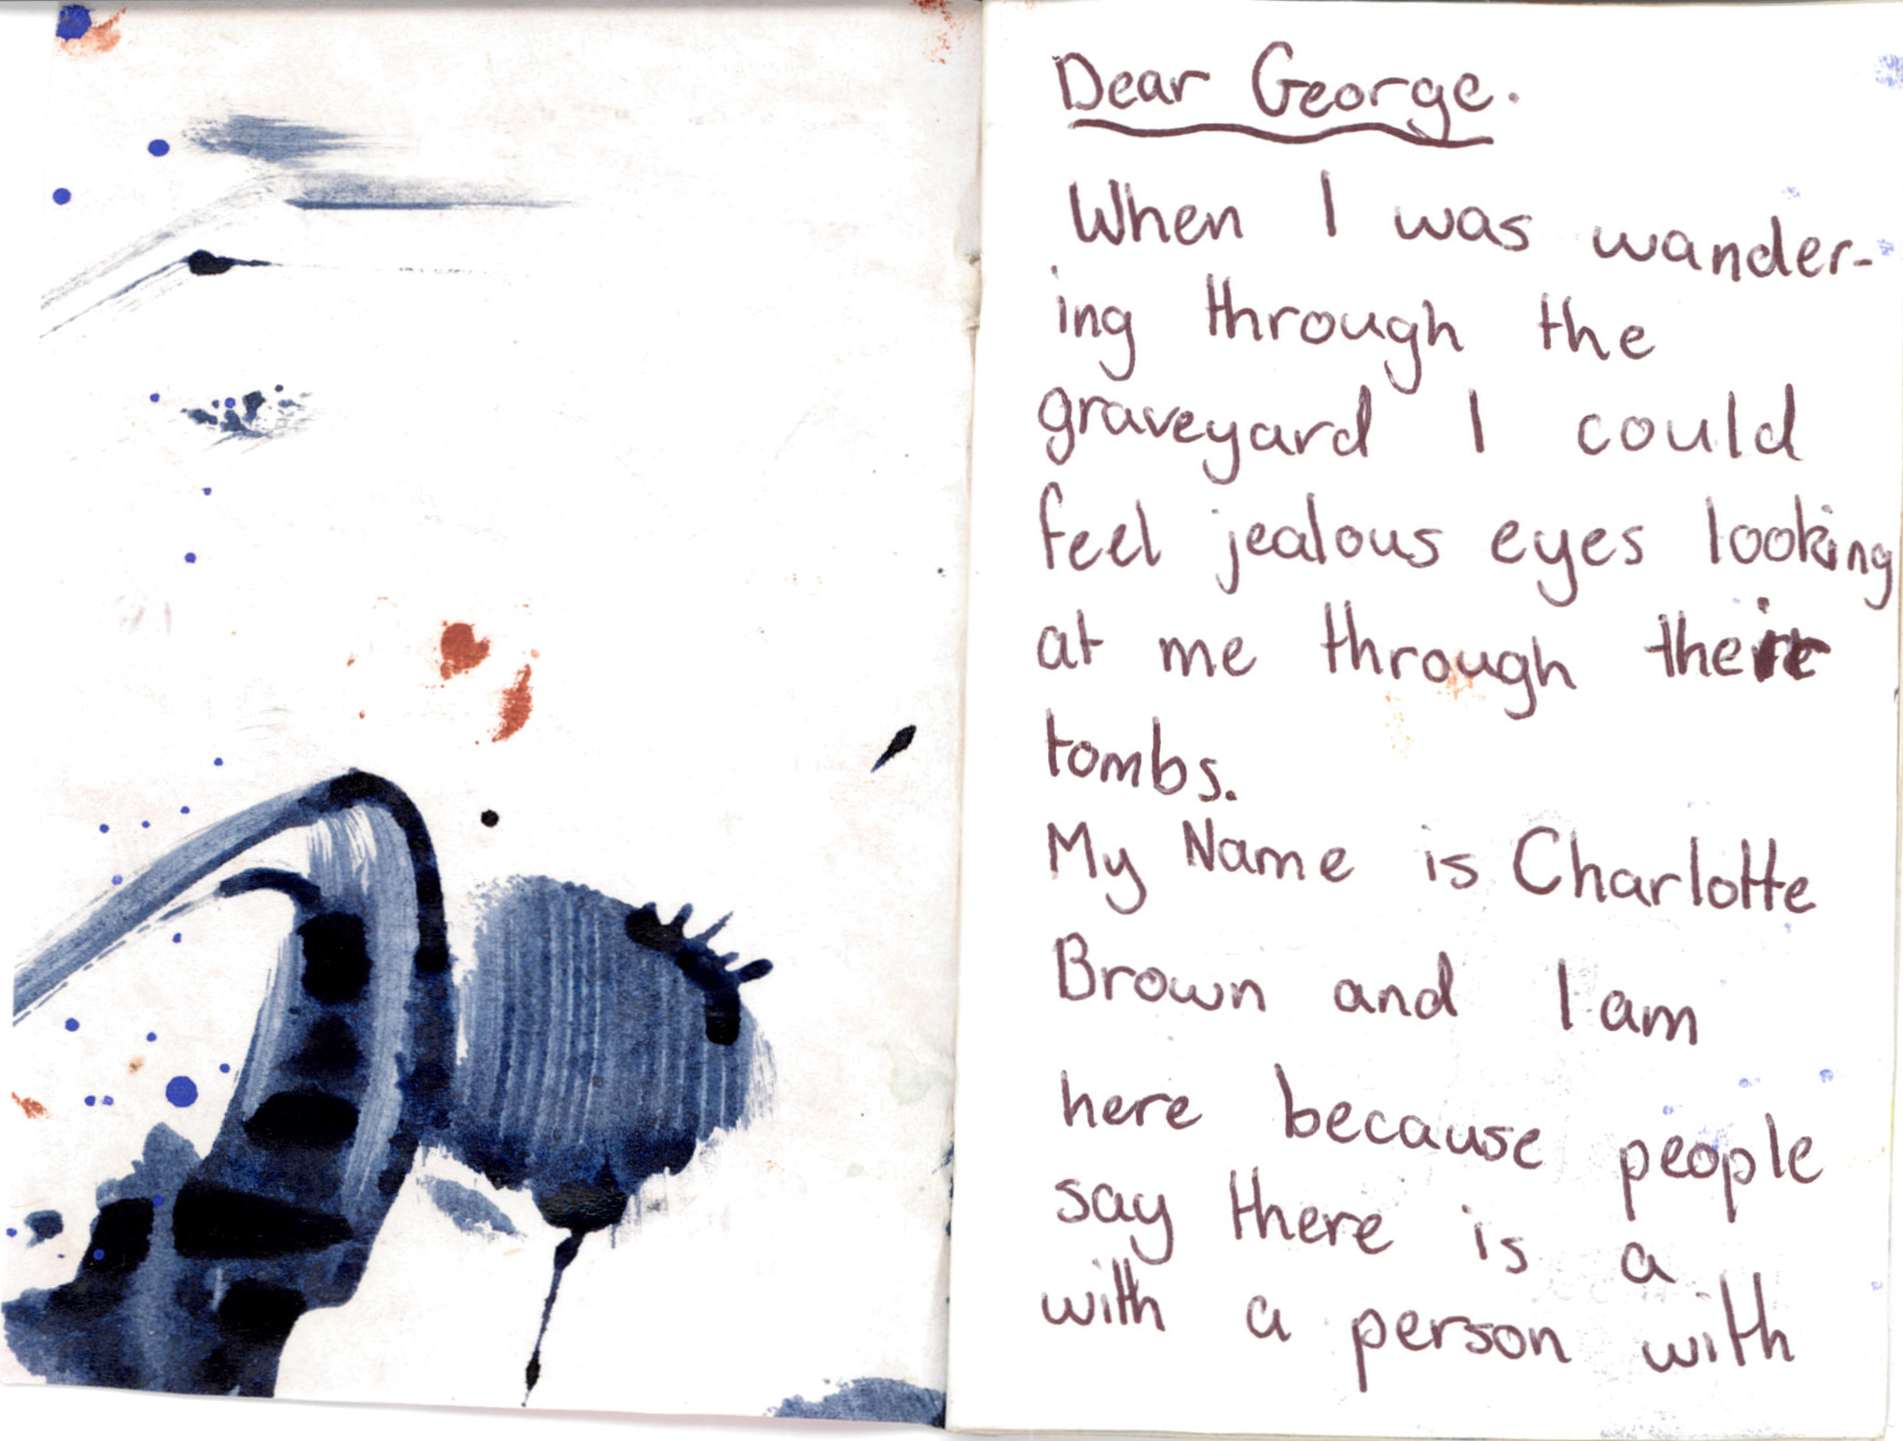 Dear George.
When I was wander-
ing through the
graveyard I could
feel jealous eyes looking
at me through their
tombs.
My Name is Charlotte
Brown and I am
here because people
say there is a
with a person with